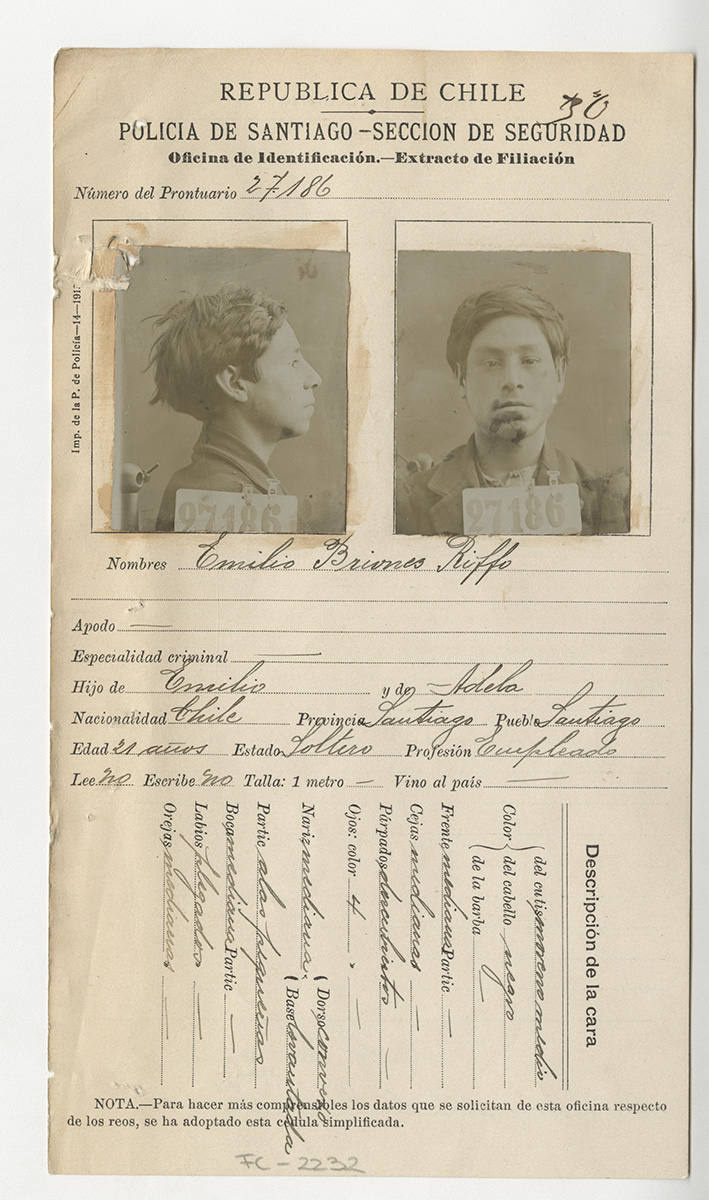 REPUBLICA DE CHILE
POLICIA DE SANTIAGO-SECCION DE SEGURIDAD
Oficina de Identificación.—Extracto de Filiación
Número del Prontuario 27.186
Imp. de la P. de Policía—14—191
27186
27186
Nombres Emilio Briones Riffo
Apodo —
Especialidad criminal —
Hijo de Emilio y de Adela
Nacionalidad Chile Provincia Santiago Pueblo Santiago
Edad 21 años Estado Soltero Profesión Empleado
Lee no Escribe no Talla: 1 metro — Vino al país —
Descripción de la cara
Color { del cutis moreno medio
del cabello negro
de la barba
Frente mediana Partic —
Cejas medianas —
Párpados descubiertos —
Ojos: color 4 —
Nariz mediana { Dorso convexo
Base levantada
Partic alas pequeñas
Boca mediana Partic —
Labios plegados —
Orejas medianas —
NOTA.—Para hacer más comprensibles los datos que se solicitan de esta oficina respecto
de los reos, se ha adoptado esta cédula simplificada.
FC-2232